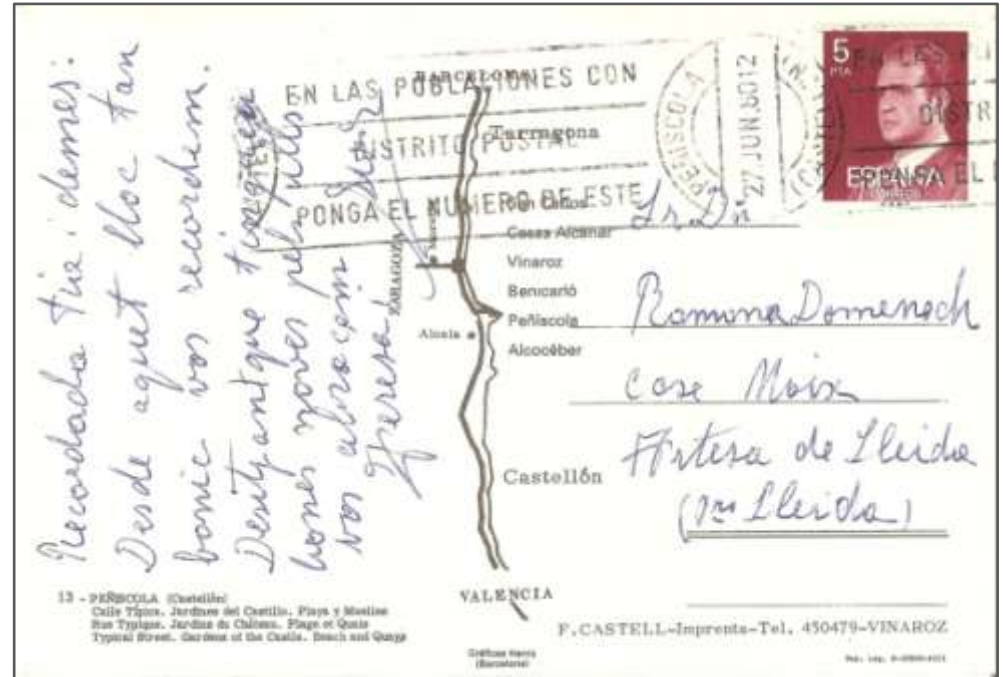 Recordada tia i demés:
Desde aquet lloc tan
bonic vos recordem.
Desitjant que tingueu
bones noves pels ulls
vos abracem
Teresa
EN LAS POBLACIONES CON
DISTRITO POSTAL
PONGA EL NUMERO DE ESTE
PEÑISCOLA
27 JUN. 80 12
5
PTA
ESPAÑA
BARCELONA
Tarragona
San Carlos
Casas Alcanar
ZARAGOZA
Vinaroz
Benicarló
Peñíscola
Alcala
Alcocéber
Castellón
VALENCIA
Ramona Domenech
Case Moix
Artesa de Lleida
(Lleida)
13 - PEÑISCOLA (Castellón)
Calle Típica. Jardines del Castillo. Playa y Muelles
Rue Typique. Jardins du Château. Plage et Quais
Typical Street. Gardens of the Castle. Beach and Quays
Gráficas
(Barcelona)
F. CASTELL-Imprenta-Tel. 450479-VINAROZ